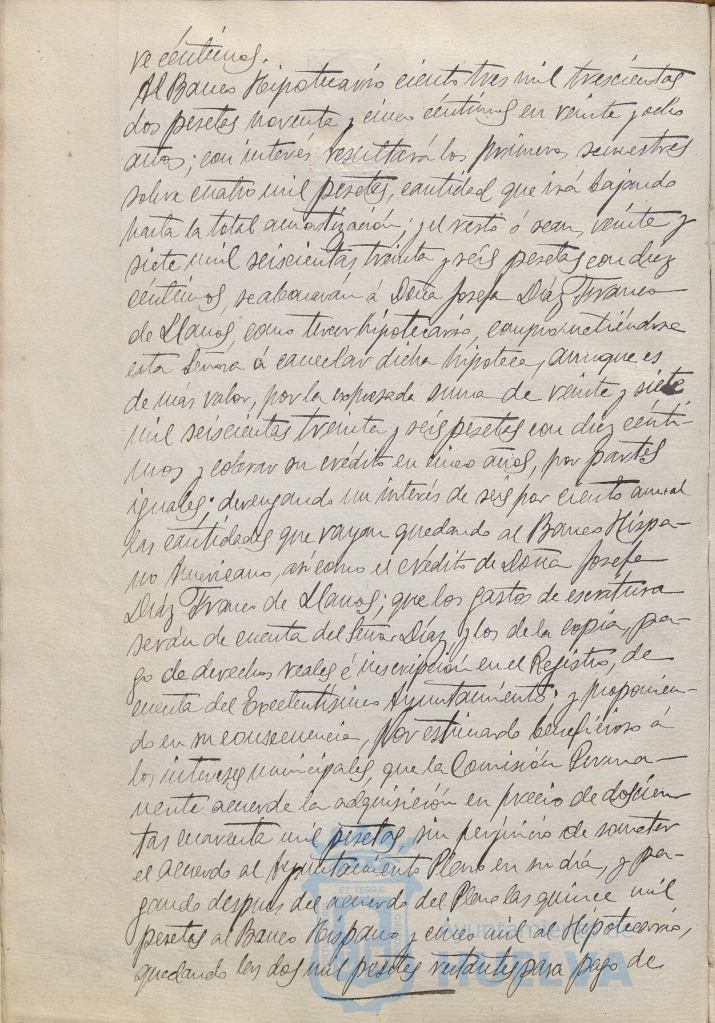 ve céntimos.
Al Banco Hipotecario ciento tres mil trescientas
dos pesetas noventa y cinco céntimos en veinte y ocho
años; con interés resultará los primeros semestres
sobre cuatro mil pesetas, cantidad que irá bajando
hasta la total amortización; y el resto ó sean, veinte y
siete mil seiscientas treinta y seis pesetas con diez
céntimos, se abonarán á Doña Josefa Díaz Franco
de Llanos, como tercer hipotecario, comprometiéndose
esta Señora á cancelar dicha hipoteca, aunque es
de más valor, por la expresada suma de veinte y siete
mil seiscientas treinta y seis pesetas con diez cénti-
mos y cobrar su crédito en cinco años, por partes
iguales; devengando un interés de seis por ciento anual
las cantidades que vayan quedando al Banco Hispa-
no Americano, así como el crédito de Doña Josefa
Díaz Franco de Llanos; que los gastos de escritura
serán de cuenta del Señor Díaz y los de la copia, pa-
go de derechos reales é inscripción en el Registro, de
cuenta del Excelentísimo Ayuntamiento; y proponien-
do en su consecuencia, por estimarlo beneficioso á
los intereses municipales, que la Comisión Perma-
nente acuerde la adquisición en precio de doscien-
tas cuarenta mil pesetas, sin perjuicio de someter
el acuerdo al Ayuntamiento Pleno en su día, y pa-
gando despues del acuerdo del Pleno las quince mil
pesetas al Banco Hispano y cinco mil al Hipotecario,
quedando las dos mil pesetas restantes para pago de
ET TERRÆ
Ayuntamiento de
HUELVA